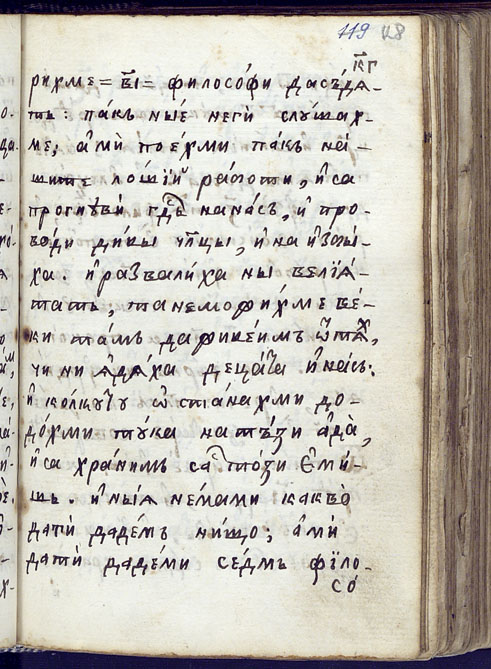 119 28
к҃г
рихме = в҃і = філосо́фи да сѣ́дѧ-
тъ : па́къ ны́е неги́ слꙋ́шах-
ме, а҆мѝ пое́хми па́къ на́-
шите ло́шїи ра́боти, и҆ са
прогнѹ́ви гд҃ь на на́съ, и҆ про-
во́ди ди́вы ҆пцы, и҆ на и҆зѡбы-
ха. и҆ разва́лиха ны вели́ѧ-
татъ, та немо́рихме ве́-
ки та́мъ да живе́имъ ѿ тѧ́х,
чи ни ꙗ҆дѧ́ха деца́та и҆ на́съ.
и҆ ко́лкуту ѡ҆ста́нахми до-
до́хми ту́ка на тѣ́зи а҆да̀,
и҆ са хра́нимъ са тѣ́зи є҆ми́-
шъ. и҆ ны́ѧ не́мами какво̀
дати даде́мъ ни́що; а҆мѝ
дати даде́ми се́дмъ фїло-
со́